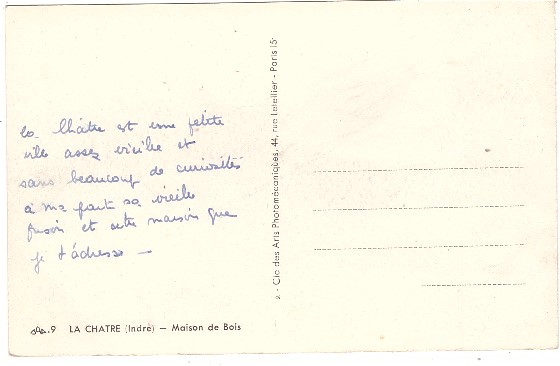 La Châtre est une petite
ville assez vieille et
sans beaucoup de curiosités
à part sa vieille
prison et cette maison que
je t'adresse —
9 LA CHATRE (Indre) — Maison de Bois
2 - Cie des Arts Photomécaniques, 44, rue Letellier - Paris 15e